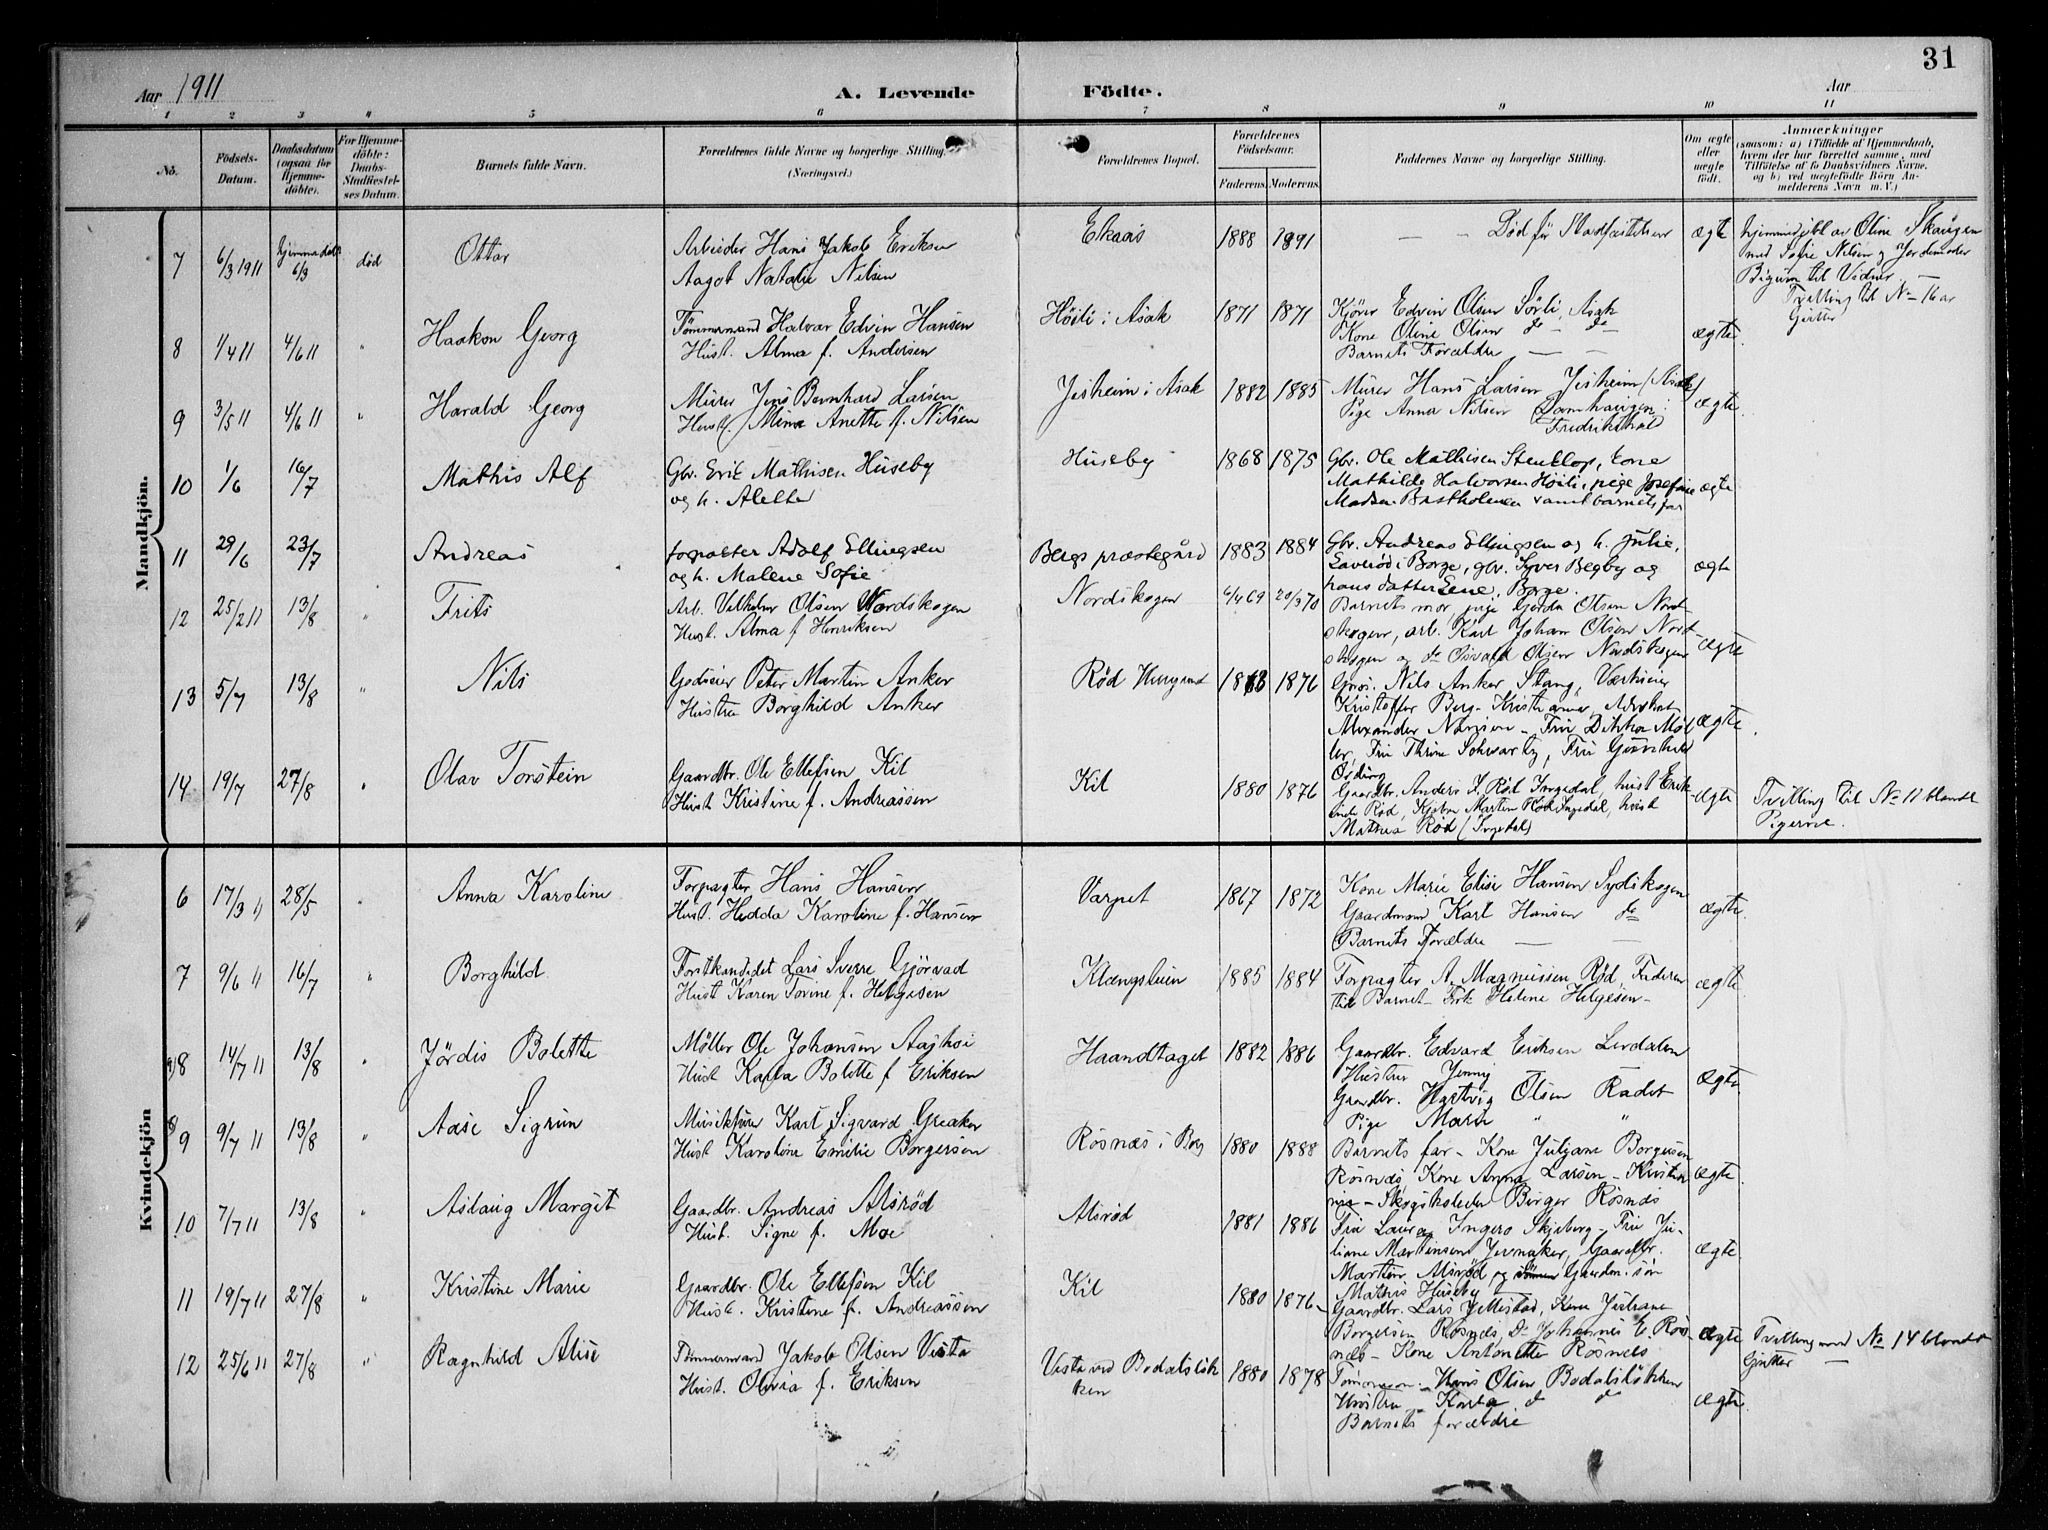 31
Aar 1911
A. Levende Födte.
Aar
1 2 3 4 5 6 7 8 9 10 11
No.
Födsels-Datum.
Daabsdatum (ogsaa for Hjemmedöbte).
For Hjemmedöbte: Daabs-Stadfæstelses Datum.
Barnets fulde Navn.
Forældrenes fulde Navne og borgerlige Stilling. (Næringsvei.)
Forældrenes Bopæl.
Forældrenes Födselsaar.
Faderens. Moderens.
Faddernes Navne og borgerlig Stilling.
Om ægte eller uægte födt.
Anmærkninger
(saasom: a) i Tilfælde af Hjemmedaab, hvem der har forrettet samme, med Tilföielse af to Daabsvidners Navne, og b) ved uægtefödte Börn Anmelderens Navn m. V.)
Mandkjön.
7 6/3 1911 hjemmedöbt 6/3 død Ottar
Arbeider Hans Jakob Eriksen
Aagot Natalie Nilsen
Ekaas 1888 1891
— — Død før Stadfæstelsen ægte
hjemmedøbt av Oline Skaugen
med Sofie Nilsen og Jordemoder
Bigum til Vidner —
Tvilling til No
8 1/4 11 4/6 11 " Haakon Georg
Tømmermand Halvar Edvin Hansen
Hust. Alma f. Andersen
Höili i Asak 1871 1871
Kjörer Edvin Olsen Sörli, Asak
Kone Oline Olsen do do
Barnets Forældre — —
ægte
9 3/5 11 4/6 11 " Harald Georg
Murer Jens Bernhard Larsen
Hust. Mina Anette f. Nilsen
Jisheim i Asak 1882 1885
Murer Hans Larsen Jisheim (Asak)
Pige Anna Nilsen Damhaugen
Fredrikshald
ægte
10 1/6 16/7 Mathis Alf
Gbr. Erik Mathisen Huseby
og h. Alette
Huseby 1868 1875
Gbr. Ole Mathisen Stentlop, kone
Mathilde Halvorsen Höili, pige Josefine
Madsen Bastholmen samt barnets far
ægte
11 29/6 23/7 Andreas
forpakter Adolf Ellingsen
og h. Malene Sofie
Bergs præstegård 1883 1884
Gbr. Andreas Ellingsen og h. Julie,
i Borge, gbr. Syver Begby og
hans datter Lene, Borge.
ægte
12 25/2 11 13/8 " Frits
Arb. Vilhelm Olsen Nordskogen
Hust. Alma f. Henriksen
Nordskogen 6/4 69 20/3 70
Barnets mor, pige Gerda Olsen Nord-
skogen, arb. Karl Johan Olsen Nord-
skogen og do Osvald Olsen Nordskogen
ægte
13 5/7 13/8 " Nils
Godseier Peter Martin Anker
Hustru Borghild Anker
Rød 1876
Nils Anker Stang, Værkseier
Kristoffer Berg - Kristiania, Advokat
Alexander Nansen - Fru Dikka Møl-
ler, Fru Thrine Schwartz, Fru Gunhild
ægte
14 19/7 27/8 " Olav Torstein
Gaardbr. Ole Ellefsen Kil
Hust. Kristine f. Andreassen
Kil 1880 1876
Gaardbr. Anders J. Röd Ingedal, hust
Röd, Martin Röd Ingedal, hust
Mathea Röd (Ingedal)
ægte
Tvilling til No 11 blandt
Pigerne.
Kvindekjön
6 17/3 11 28/5 Anna Karoline
Forpagter Hans Hansen
Hust. Hedda Karoline f. Hansen
Varpet 1867 1872
Kone Marie Elise Hansen Sydskogen
Gaardmand Karl Hansen do
Barnets Forældre — —
ægte
7 9/6 11 16/7 " Borghild
Forstkandidat Lars Sverre Gjörvad
Hust Karen Tovine f. Helgesen
Klængsleien 1885 1884
Forpagter A. Magnussen Röd,
Barnet - Frk Helene Helgesen -
ægte
8 14/7 11 13/8 " Jördis Bolette
Møller Ole Johansen Aashøi
Hust Karla Bolette f Eriksen
Haandtaget 1882 1886
Gaardbr. Edvard Eriksen Lerdalen
Hustru Jenny
Gaardbr. Hartvig Olsen Radet
Pige Marie " "
ægte
9 9/7 11 13/8 " Aase Sigrun
Musikfører Karl Sigvard Greaker
Hust Karoline Emilie Borgersen
Røsnæs i Berg 1880 1888
Barnets far - Kone Juliane Borgersen
Røsnæs, Kone Anna Larsen - Kristia-
nia - Borger Røsnæs
ægte
10 7/7 11 13/8 " Aslaug Margit
Gaardbr. Andreas Alsröd
Hust. Signe f. Moe
Alsröd 1881 1886
Fru Laura Ingerö Skjeberg - Fru Ju-
liane Martinsen Jevnaker, Gaardbr.
Martin Alsröd og Gaardm. sön
Mathis Huseby
ægte
11 19/7 11 27/8 " Kristine Marie
Gaardbr. Ole Ellefsen Kil
Hust. Kristine f. Andreassen
Kil 1880 1876
Gaardbr. Lars Jellestad, Kone Juliane
Borgersen Røsnæs, Do Johannes E. Røs-
næs - Kone Antonette Røsnæs
ægte
Tvilling med No 14 blandt
Gutter —
12 25/6 11 27/8 " Ragnhild Alise
Tømmermand Jakob Olsen Vista
Hust. Olivia f. Eriksen
Vista ved Bodalsløk-
ken 1880 1878
Hans Olsen Bodalsløkken
Hustru Karla do do
Barnets forældre
ægte